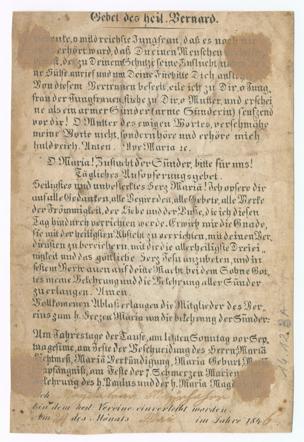 Gebet des heil. Bernard.
o mildreichste Jungfrau, daß es noch nie
erhört ward, daß Du einen Menschen
der zu Deinem Schutze seine Zuflucht
ne Hülfe anrief und um Deine Fürbitte Dich
Von diesem Vertrauen beseelt, eile ich zu Dir, o Jung,
frau der Jungfrauen, fliehe zu Dir, o Mutter, und erschei
ne als ein armer Sünder (arme Sünderin) seufzend
vor dir! O Mutter des ewigen Wortes, verschmähe
meine Worte nicht, sondern höre und erhöre mich
huldreich. Amen. Ave Maria ec.
O Maria! Zuflucht der Sünder, bitte für uns!
Tägliches Aufopferungsgebet.
Heiligstes und unbeflecktes Herz Maria! Ich opfere dir
auf alle Gedanken, alle Begierden, alle Gebete, alle Werke
der Frömmigkeit, der Liebe und der Buße, die ich diesen
Tag hindurch verrichten werde. Erwirb mir die Gnade,
sie mit der heiligsten Absicht zu verrichten, mit deinen Ver,
diensten zu bereichern, mit die die allerheiligste Dreiei
nigkeit und das göttliche Herz Jesu anzubeten, und in
festem Vertrauen auf deine Macht bei dem Sohne Got,
tes meine Bekehrung und die Bekehrung aller Sünder
zu erlangen. Amen.
Vollkommen Ablaß erlangen die Mitglieder des Ver,
eins zum h. Herzen Mariä um die bekehrung der Sünder:
Am Jahrestage der Taufe, am letzten Sonntag vor Sep,
tuagesima, am Feste der Beschneidung des Herrn, Mariä
Lichtmeß, Mariä Verkündigung, Mariä Geburt, Mariä
am Feste der 7 Schmerzen Marien,
Bekehrung des h. Paulus und der h. Maria Magd
Ich
bin dem heil Vereine einverleibt worden.
Am des Monats im Jahre 184